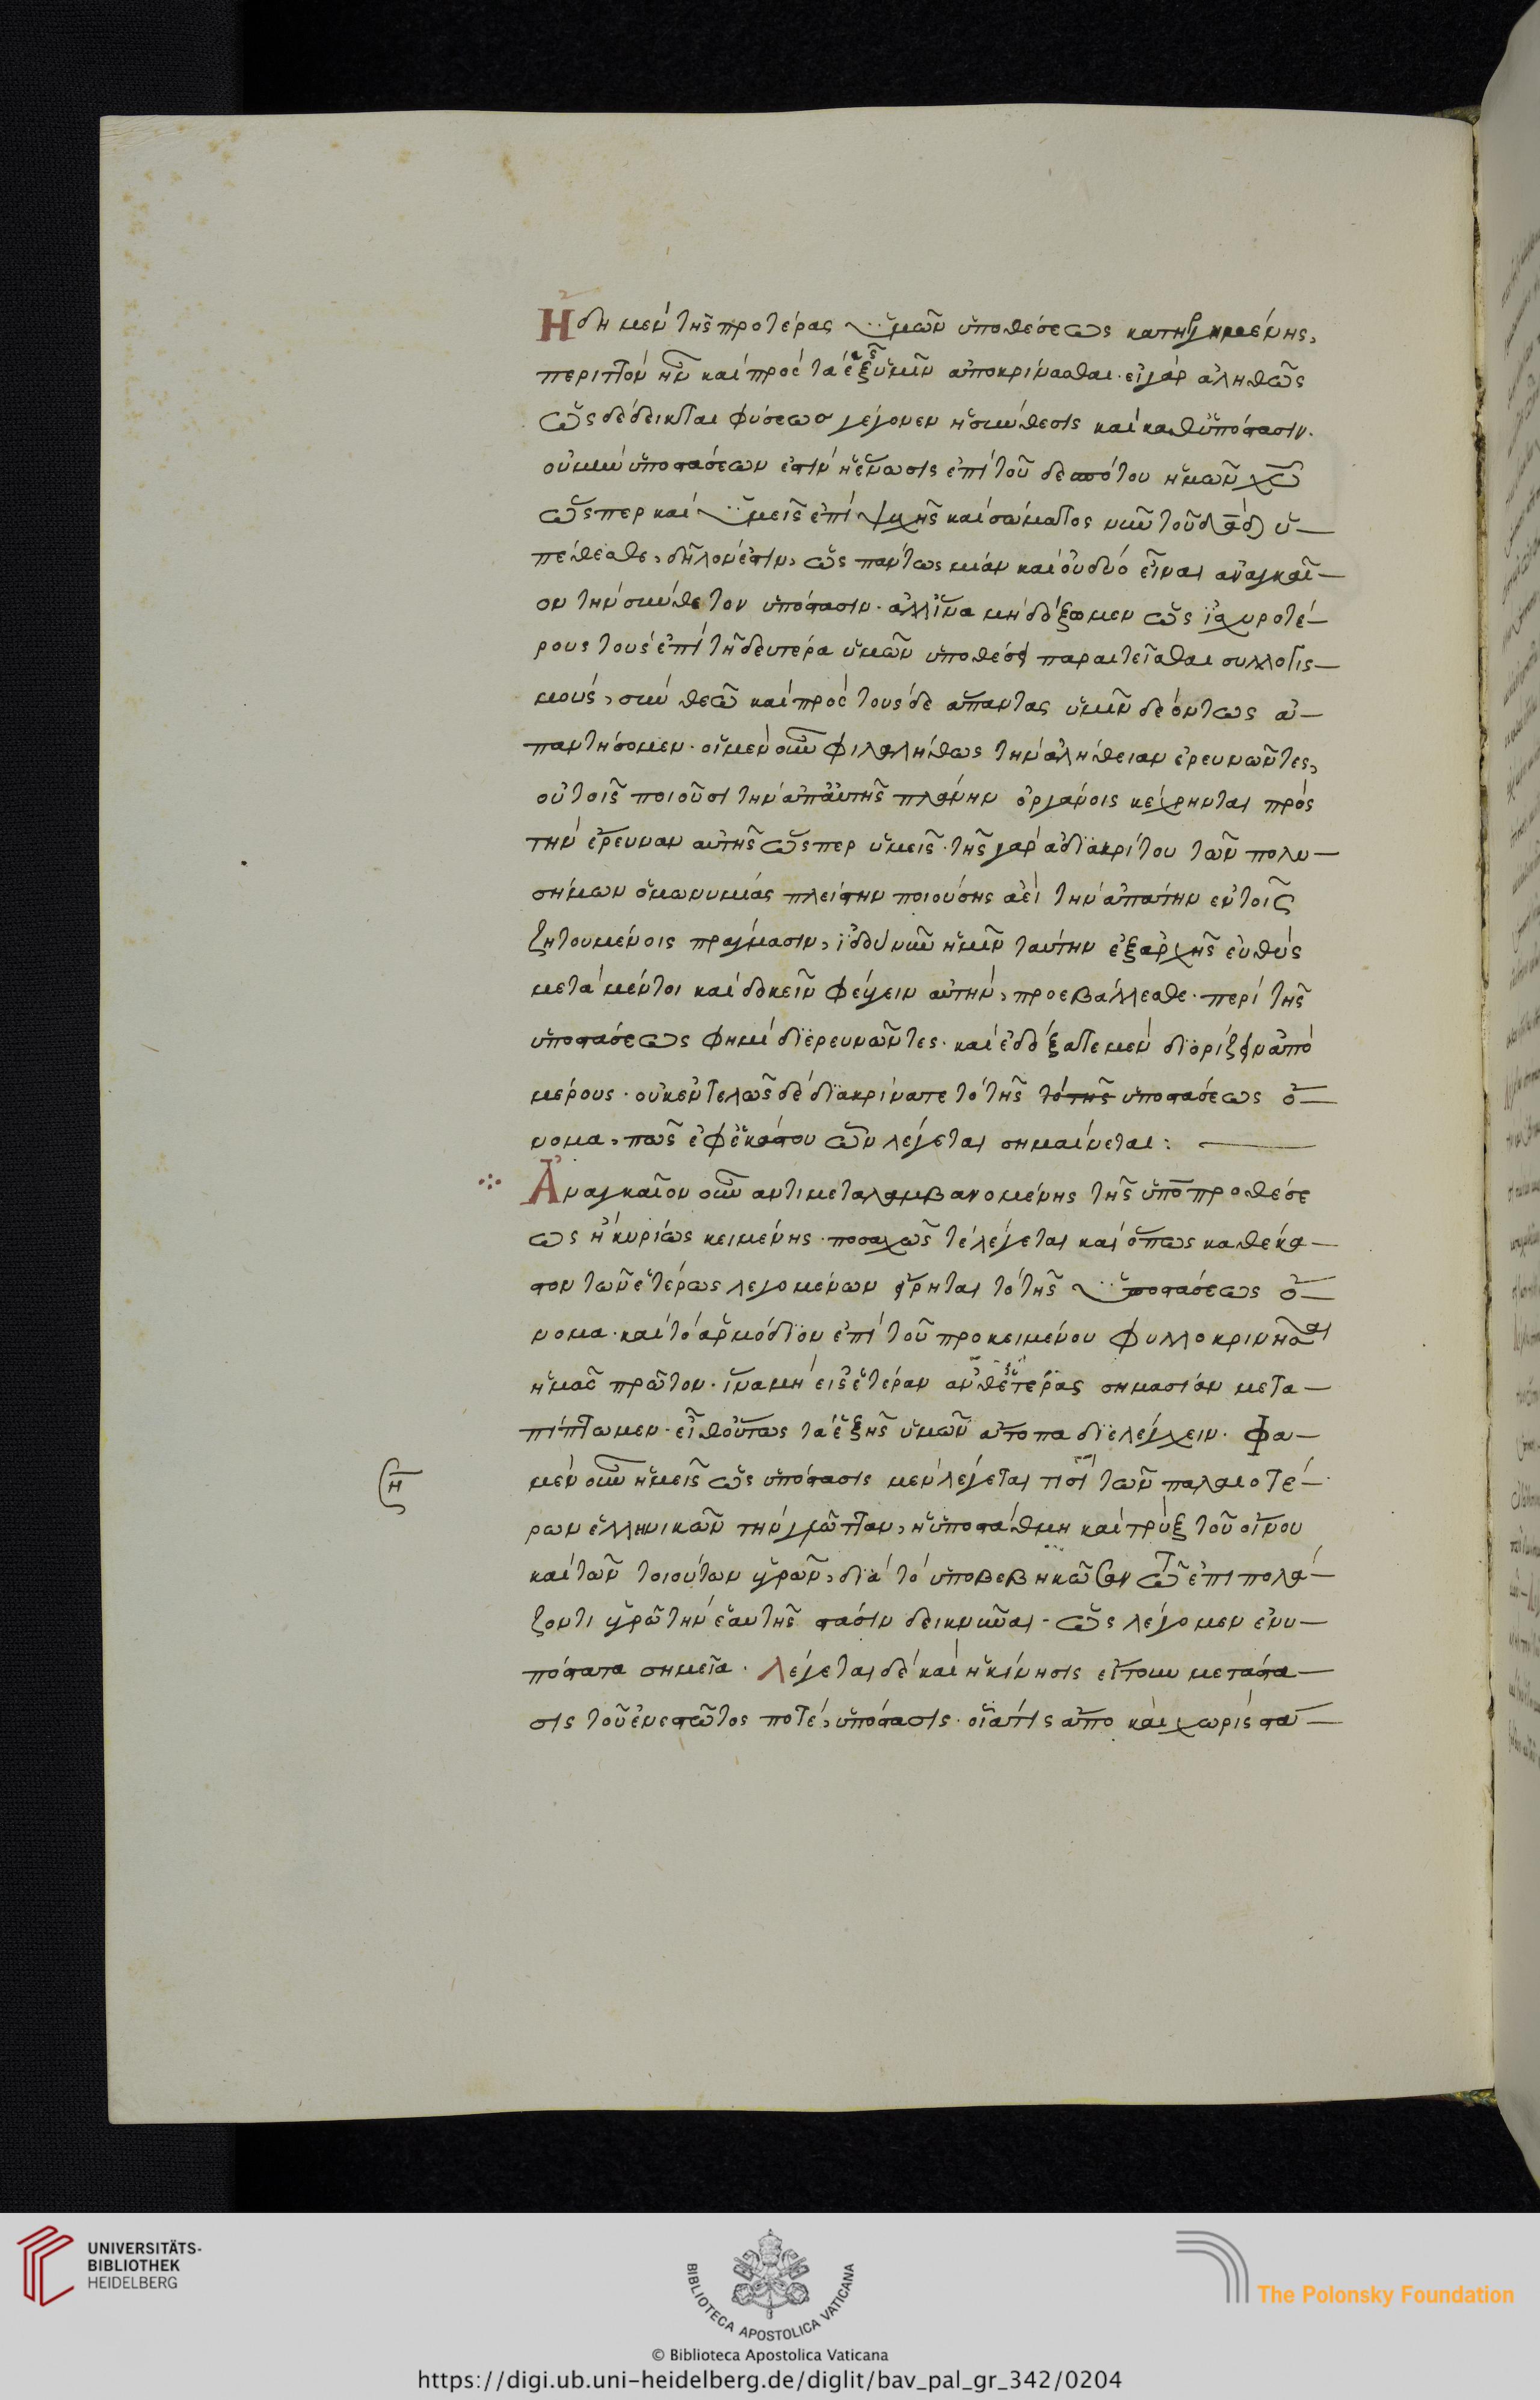 Ἤδη μὲν τῆς προτέρας ὑμῶν ὑποθέσεως κατηγμένης,
περιττὸν ἦν καὶ πρὸς τὰ ἑξῆς ὑμῖν ἀποκρίνασθαι. εἰ γὰρ ἀληθῶς
ὡς δέδεικται φύσεως γέγονεν ἡ σύνθεσις καὶ καθ' ὑπόστασιν.
οὐ μὴν ὑποστάσεων ἐστὶν ἡ ἕνωσις ἐπὶ τοῦ δεσπότου ἡμῶν χ̅υ̅
ὥσπερ καὶ ὑμεῖς ἐπὶ ψυχῆς καὶ σώματος νῦν τοῦ δᾱδ ὑ–
πέθεσθε, δηλονέστιν, ὡς πάντως μίαν καὶ οὐ δύο εἶναι ἀναγκαῖ–
ον τὴν σύνθετον ὑπόστασιν. ἀλλ' ἵνα μὴ δόξωμεν ὡς ἰσχυροτέ–
ρους τοὺς ἐπὶ τῇ δευτέρα ὑμῶν ὑποθέσει παραιτεῖσθαι συλλογισ–
μοὺς, σὺν θεῶ καὶ πρὸς τούσδε ἅπαντας ὑμῖν δεόντως ἀ–
παντήσομεν. οἱ μὲν οὖν φιλαλήθως τὴν ἀλήθειαν ἐρευνῶντες,
οὐ τοῖς ποιοῦσι τὴν ἀπ' αὐτῆς πλάνην ὀργάνοις κέχρηνται πρὸς
τὴν ἔρευναν αὐτῆς ὥσπερ ὑμεῖς. τῆς γὰρ ἀδιακρίτου τῶν πολυ–
σήμων ὁμωνυμίας πλείστην ποιούσης ἀεὶ τὴν ἀπάτην ἐν τοῖς
ζητουμένοις πράγμασιν, ἰδοὺ νῦν ἡμῖν ταύτην ἐξαρχῆς εὐθὺς
μετὰ μέντοι καὶ δοκεῖν φεύγειν αὐτὴν, προεβάλλεσθε. περὶ τῆς
ὑποστάσεως φημὶ διερευνῶντες. καὶ ἐδόξατε μὲν διορίζειν ἀπὸ
μέρους. οὐκ ἐντελῶς δὲ διακρίνατε τὸ τῆς τὸ τῆς ὑποστάσεως ὄ–
νομα, πῶς ἐφ' ἑκάστου ὧν λέγεται σημαίνεται:
Ἀναγκαῖον οὖν ἀντιμεταλαμβανομένης τῆς ὑπὸ προθέσε
ως ἢ κυρίως κειμένης. ποσαχῶς τὲ λέγεται καὶ ὅπως καθ' ἕκα–
στον τῶν ἑτέρως λεγομένων εἴρηται τὸ τῆς ὑποστάσεως ὄ–
νομα. καὶ τὸ ἁρμόδιον ἐπὶ τοῦ προκειμένου φυλλοκρινῆσαι
ἡμᾶς πρῶτον. ἵνα μὴ εἰς ἑτέραν ἀνθ' ἑτέρας σημασίαν μετα–
πίπτωμεν. εἶθ' οὕτως τὰ ἑξῆς ὑμῶν ἄτοπα διελέγχειν. Φα–
μὲν οὖν ἡμεῖς ὡς ὑπόστασις μὲν λέγεται τισὶ τῶν παλαιοτέ–
ρων ἑλληνικῶν τὴν γλῶτταν, ἡ ὑποστάθμη καὶ τρὺξ τοῦ οἴνου
καὶ τῶν τοιούτων ὑγρῶν, διὰ τὸ ὑποβεβηκῶσαν τῶ ἐπιπολά–
ζοντι ὑγρῶ τὴν ἑαυτῆς στάσιν δεικνῦναι. ὡς λέγομεν ἐνυ–
πόστατα σημεῖα. Λέγεται δὲ καὶ ἡ κίνησις εἴτουν μετάστα–
σις τοῦ ἐνεστῶτος ποτὲ, ὑπόστασις. οἷα τίς ἄπο καὶ χωρὶς στά–
η̅
UNIVERSITÄTS-
BIBLIOTHEK
HEIDELBERG
BIBLIOTECA APOSTOLICA VATICANA
The Polonsky Foundation
© Biblioteca Apostolica Vaticana
https://digi.ub.uni-heidelberg.de/diglit/bav_pal_gr_342/0204